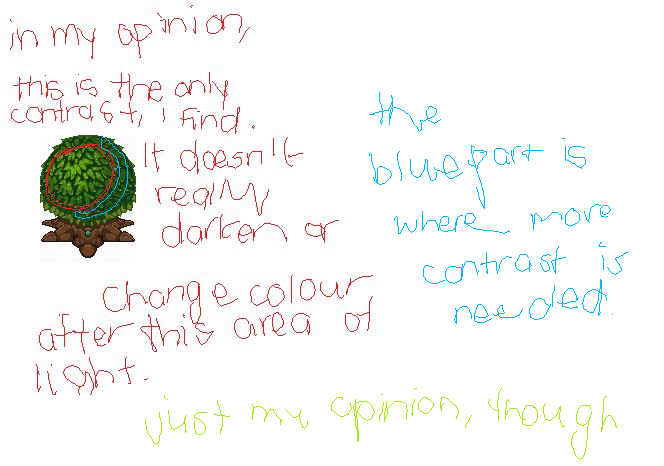 in my opinion,
this is the only
contrast, i find.
It doesn't
really
darken or
change colour
after this area of
light.
the
blue part is
where more
contrast is
needed.
just my opinion, though.